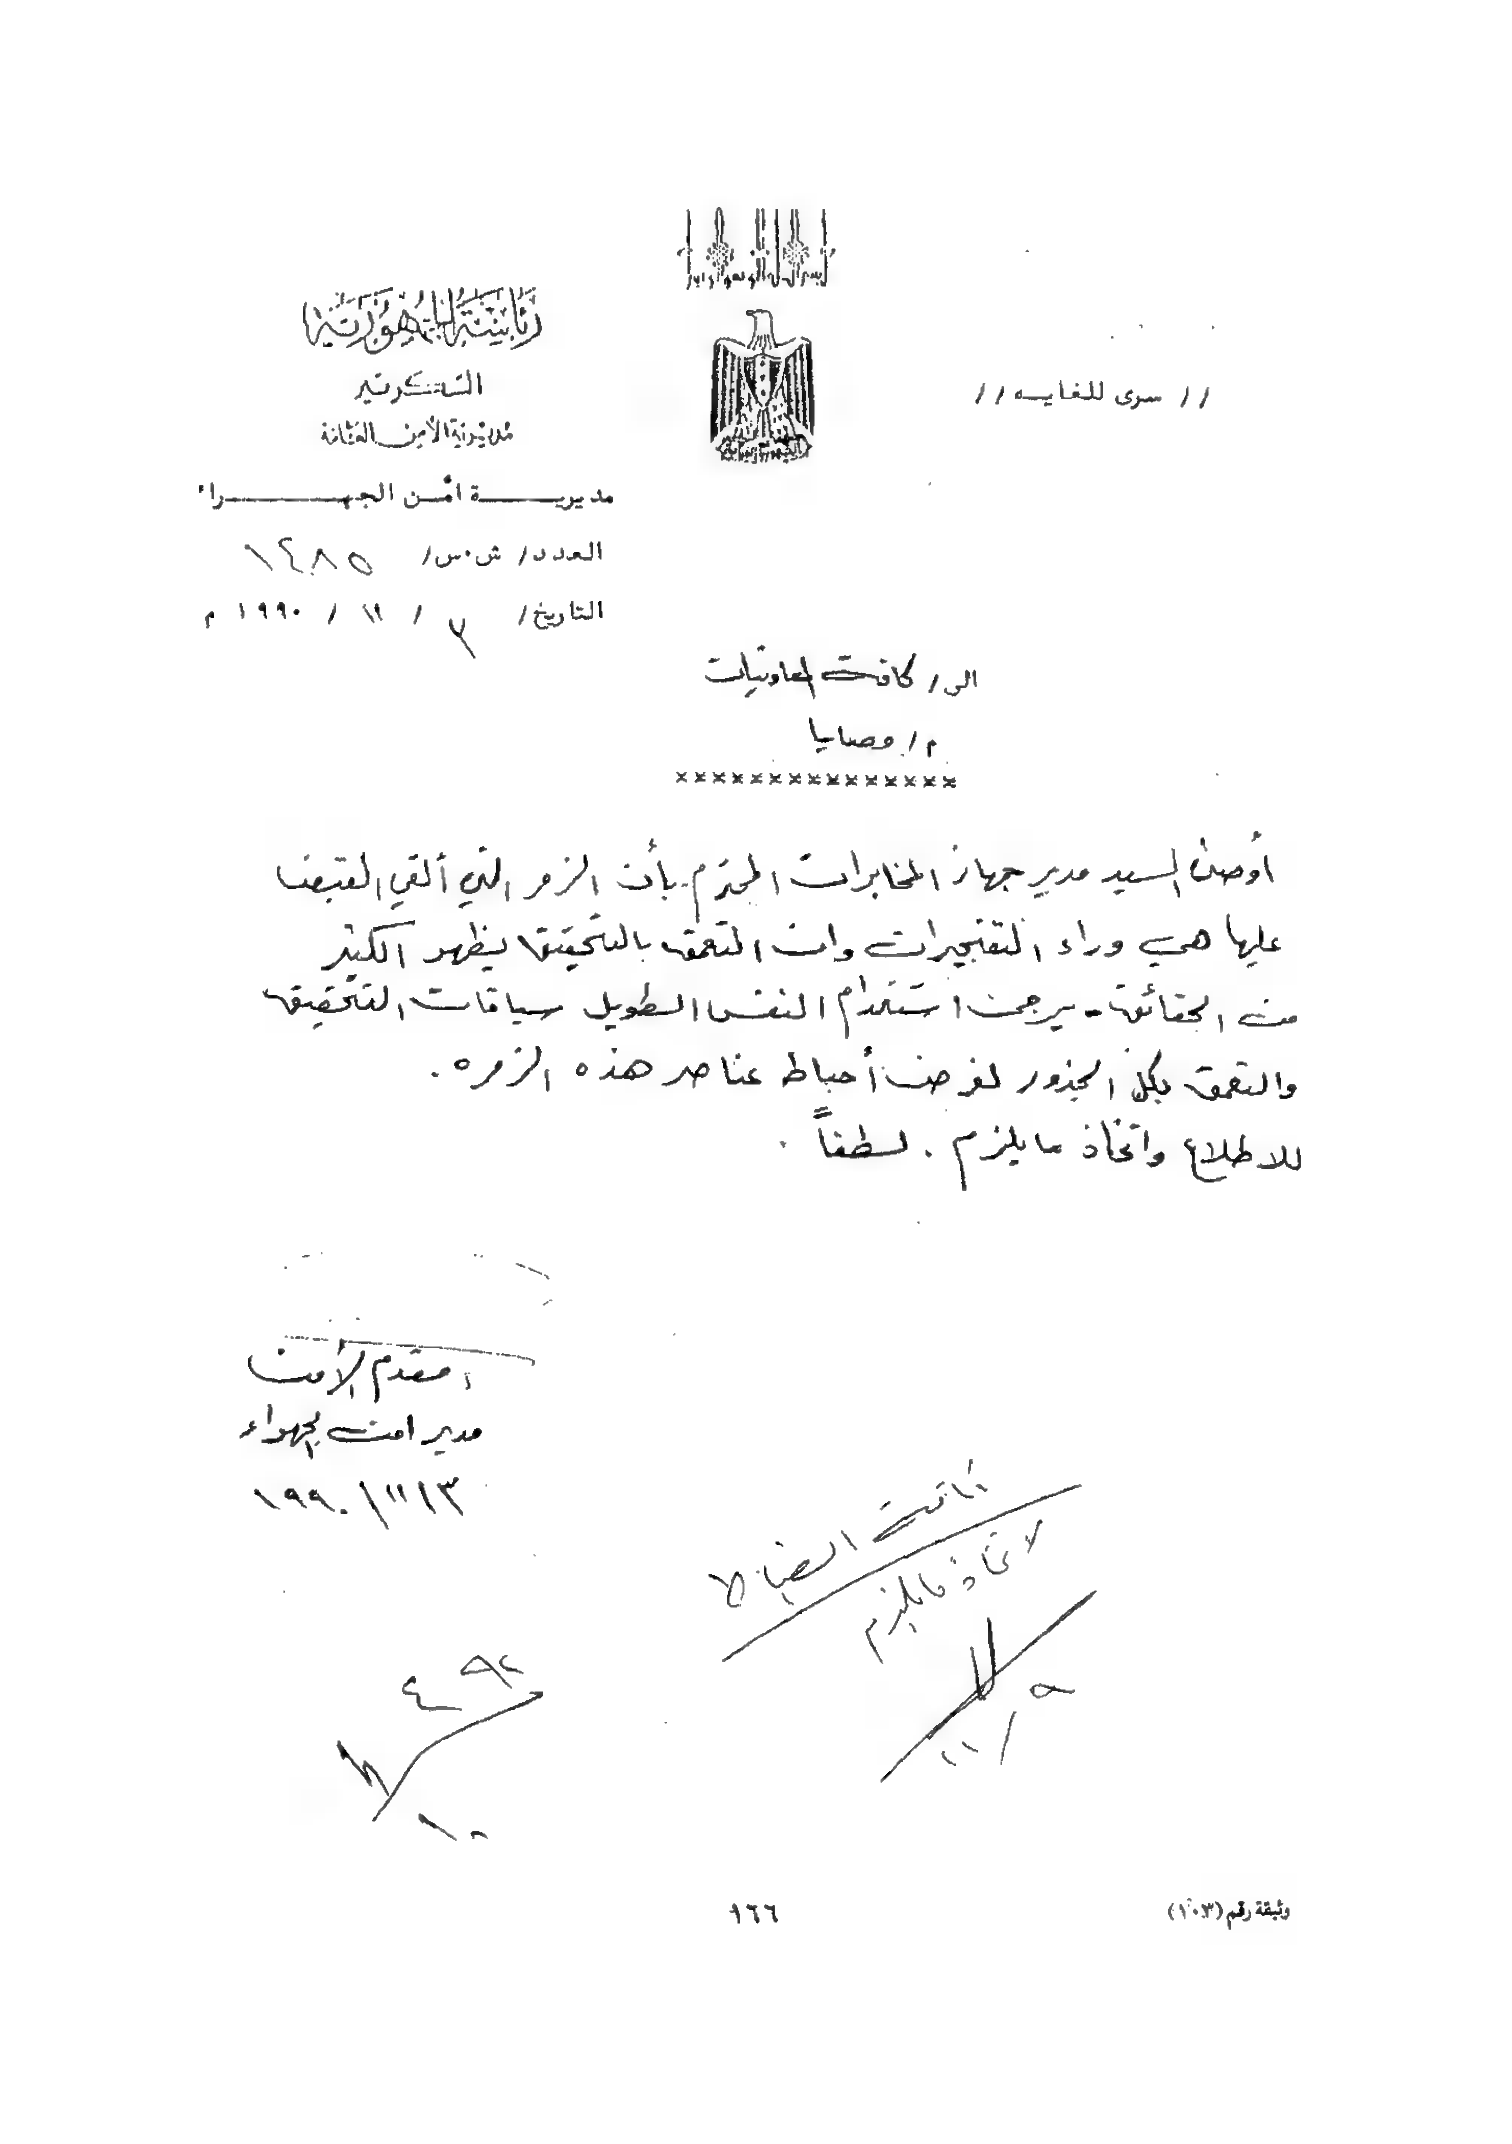 بسم الله الرحمن الرحيم
رئاسة الجمهورية
السكرتير
مديرية الأمن العامة
// سرى للغايه //
مديرية امن الجهراء
العدد/ ش.س/ ١٤٨٥
التاريخ/ ٣ / ١١ / ١٩٩٠ م
الى/ كافة المعاونيات
م/ وصايا
×××××××××××××××
أوصى السيد مدير جهاز المخابرات المحترم بأن الزمر التي ألقي القبض
عليها هي وراء التفجيرات وان التعمق بالتحقيق يظهر الكثير
من الحقائق - يرجى استخدام النفس الطويل سياقات التحقيق
والتعمق بكل الجذور لغرض أحباط عناصر هذه الزمره .
للاطلاع واتخاذ مايلزم . لطفاً .
مقدم الأمن
مدير امن الجهراء
١٩٩٠/١١/٣
كافة الضباط
لاتخاذ مايلزم
١٦٦
وثيقة رقم (١٠٣)